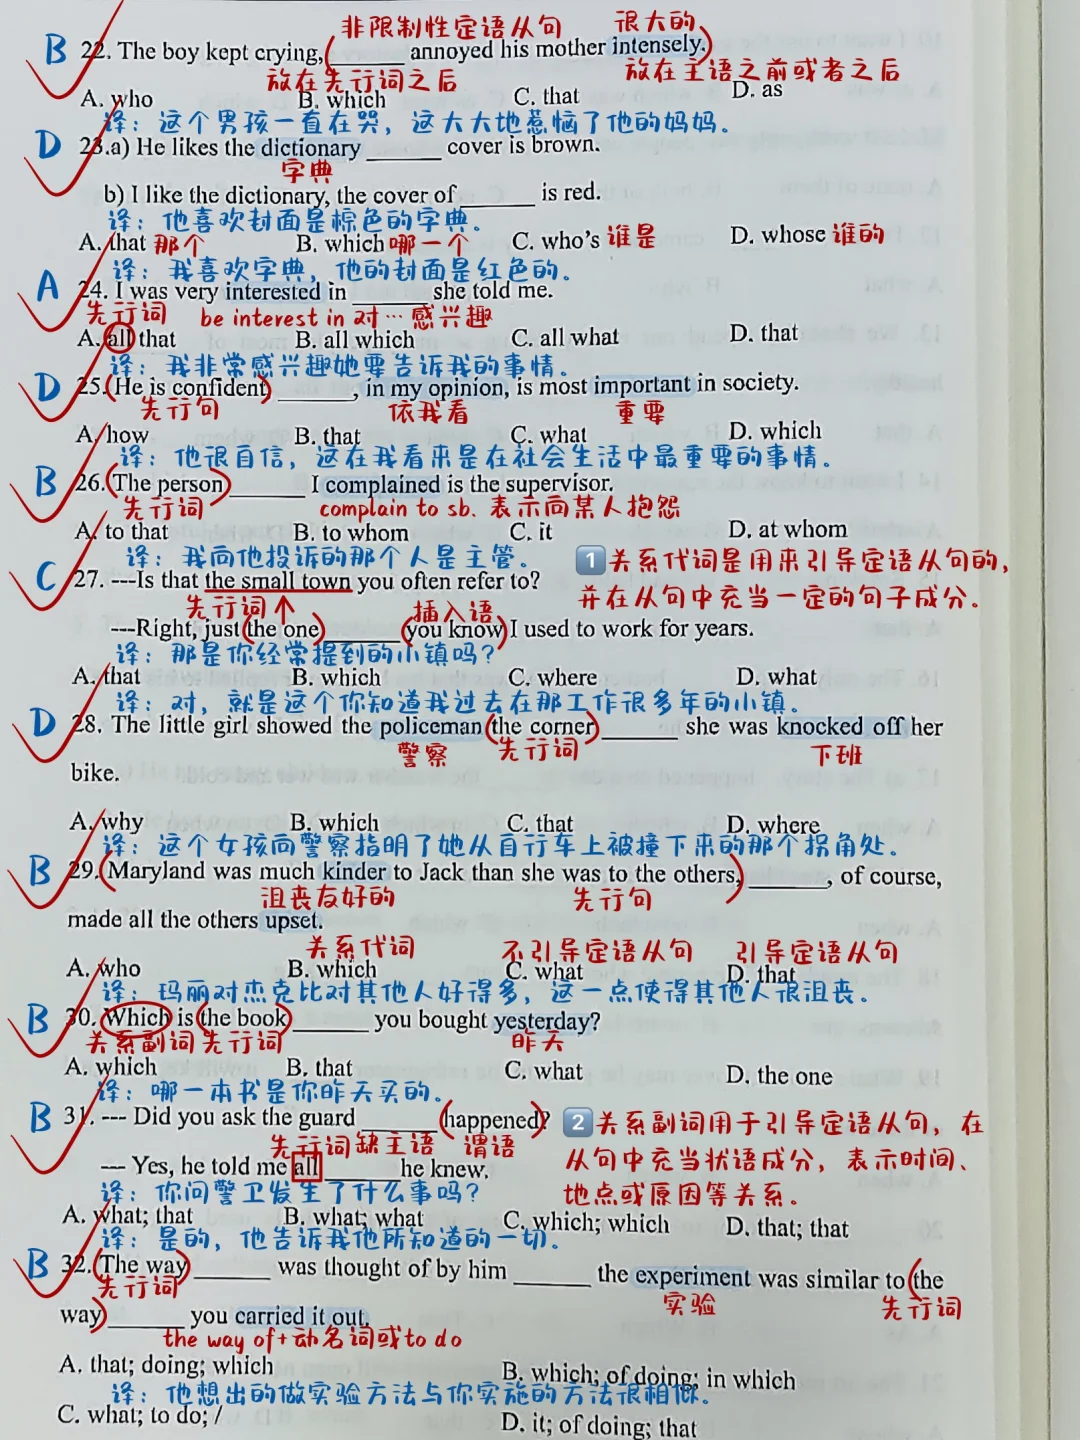 非限制性定语从句 很大的
B 22. The boy kept crying, ______ annoyed his mother intensely.
放在先行词之后 放在主语之前或者之后
A. who B. which C. that D. as
译：这个男孩一直在哭，这大大地惹恼了他的妈妈。
D 23.a) He likes the dictionary ______ cover is brown.
字典
b) I like the dictionary, the cover of ______ is red.
译：他喜欢封面是棕色的字典。
A. that 那个 B. which 哪一个 C. who's 谁是 D. whose 谁的
译：我喜欢字典，他的封面是红色的。
A 24. I was very interested in ______ she told me.
先行词 be interest in 对…感兴趣
A. all that B. all which C. all what D. that
译：我非常感兴趣她要告诉我的事情。
D 25. (He is confident) ______, in my opinion, is most important in society.
先行句 依我看 重要
A. how B. that C. what D. which
译：他很自信，这在我看来是在社会生活中最重要的事情。
B 26. (The person) ______ I complained is the supervisor.
先行词 complain to sb. 表示向某人抱怨
A. to that B. to whom C. it D. at whom
译：我向他投诉的那个人是主管。 1 关系代词是用来引导定语从句的，
C 27. ---Is that the small town you often refer to? 并在从句中充当一定的句子成分。
先行词 插入语
---Right, just (the one) ______ (you know) I used to work for years.
译：那是你经常提到的小镇吗？
A. that B. which C. where D. what
译：对，就是这个你知道我过去在那工作很多年的小镇。
D 28. The little girl showed the policeman (the corner) ______ she was knocked off her
警察 先行词 下班
bike.
A. why B. which C. that D. where
译：这个女孩向警察指明了她从自行车上被撞下来的那个拐角处。
B 29. (Maryland was much kinder to Jack than she was to the others,) ______, of course,
沮丧友好的 先行句
made all the others upset.
关系代词 不引导定语从句 引导定语从句
A. who B. which C. what D. that
译：玛丽对杰克比对其他人好得多，这一点使得其他人很沮丧。
B 30. Which is (the book) ______ you bought yesterday?
关系副词 先行词 昨天
A. which B. that C. what D. the one
译：哪一本书是你昨天买的。
B 31. --- Did you ask the guard ______ (happened)? 2 关系副词用于引导定语从句，在
先行词缺主语 谓语 从句中充当状语成分，表示时间、
--- Yes, he told me all ______ he knew. 地点或原因等关系。
译：你问警卫发生了什么事吗？
A. what; that B. what; what C. which; which D. that; that
译：是的，他告诉我他所知道的一切.
B 32. (The way) ______ was thought of by him ______ the experiment was similar to (the
先行词 实验 先行词
way) ______ you carried it out.
the way of+动名词或to do
A. that; doing; which B. which; of doing; in which
译：他想出的做实验方法与你实施的方法很相似。
C. what; to do; / D. it; of doing; that